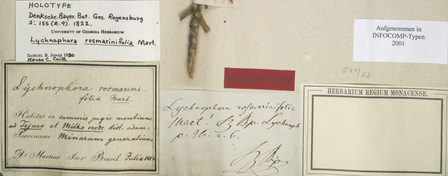 HOLOTYPE
Denkschr. Bayer. Bot. Ges. Regensburg
2: 155 (t. 9). 1822.
UNIVERSITY OF GEORGIA HERBARIUM
Lychnophora rosmarinifolia Mart.
Samuel B. Jones 1980
Nancy C. Coile
Lychnophora rosmarini-
folia Mart.
Habitat in summis jugis montium
ad Tejuco et Milho verde dist. adam.
Provinciae Minarum generalium
D. Martius Iter Brasil. Julio
HOLOTYPUS
Lychnophora rosmarinifolia
Mart! Sz Bip. Lychnoph
p. 26. n. 6.
Sz Bip
Aufgenommen in
INFOCOMP-Typen
2001
HERBARIUM REGIUM MONACENSE.